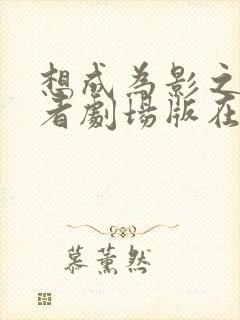 想成为影之
者劇場版在
慕薰然